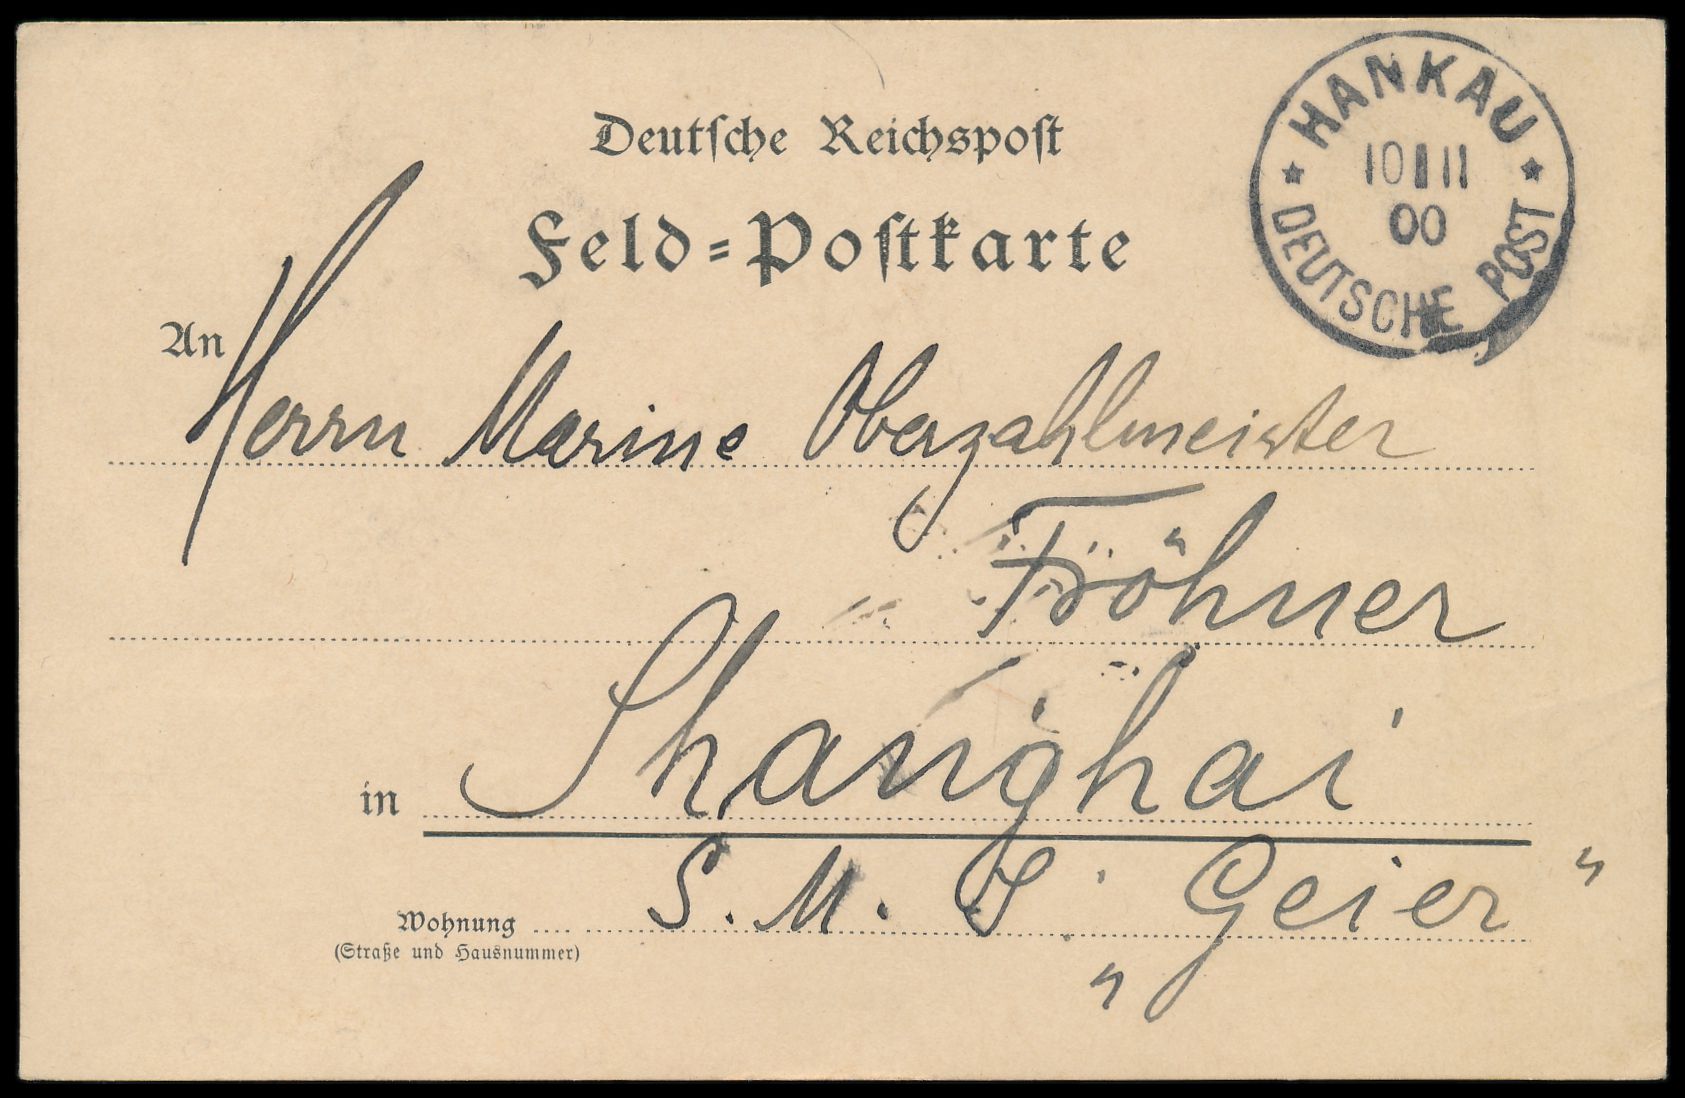 Deutsche Reichspost
Feld-Postkarte
HANKAU
10 11
00
DEUTSCHE POST
An Herrn Marine Oberzahlmeister
Fröhner
in Shanghai
Wohnung S. M. S. „Geier"
(Straße und Hausnummer)